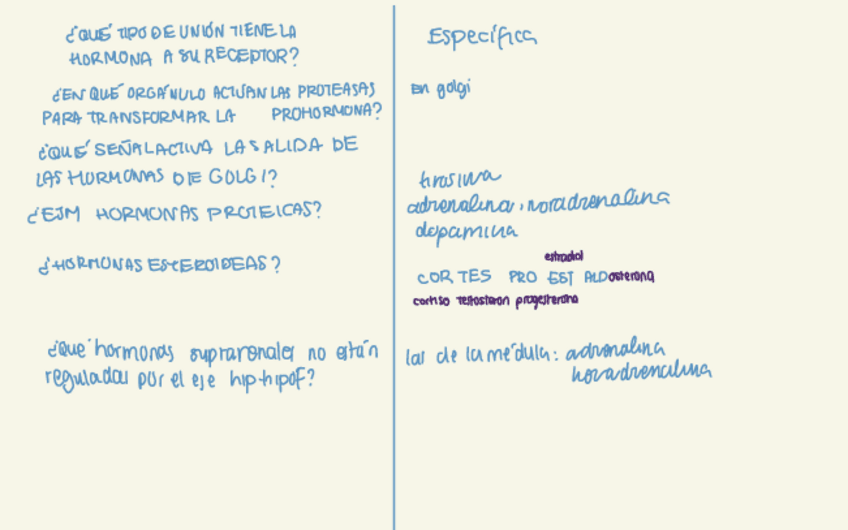 ¿QUÉ TIPO DE UNIÓN TIENE LA
HORMONA A SU RECEPTOR?
Específica
¿EN QUÉ ORGÁNULO ACTÚAN LAS PROTEASAS
PARA TRANSFORMAR LA PROHORMONA?
en golgi
¿QUÉ SEÑAL ACTIVA LA SALIDA DE
LAS HORMONAS DE GOLGI?
¿EJM HORMONAS PROTEICAS?
tirosina
adrenalina, noradrenalina
dopamina
¿HORMONAS ESTEROIDEAS?
estradiol
CORTES PRO EST ALDosterona
cortiso testosteron progesterona
¿Qué hormonas suprarrenales no están
reguladas por el eje hip-hipof?
las de la médula: adrenalina
noradrenalina